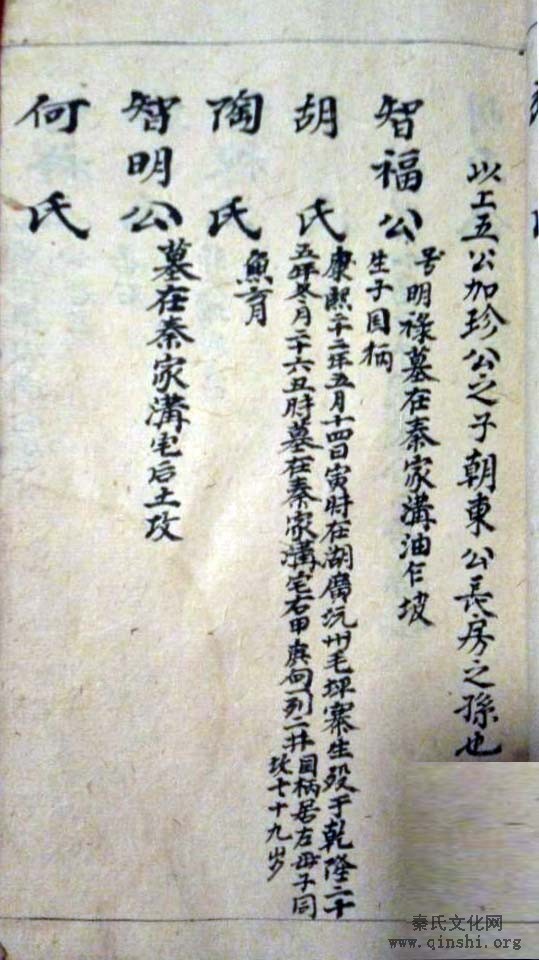 以上五公加珍公之子朝東公長房之孫也
智福公
号明禄墓在秦家溝油乍坡
生子国柄
胡氏
康熙二十二年五月十四日寅时在湖廣沅州毛坪寨生殁于乾隆二十
五年冬月二十六丑时墓在秦家溝宅右甲庚向一列二井国柄居左母子同
坟七十九岁
陶氏
魚育
智明公
墓在秦家溝宅后土坟
何氏
秦氏文化网
www.qinshi.org